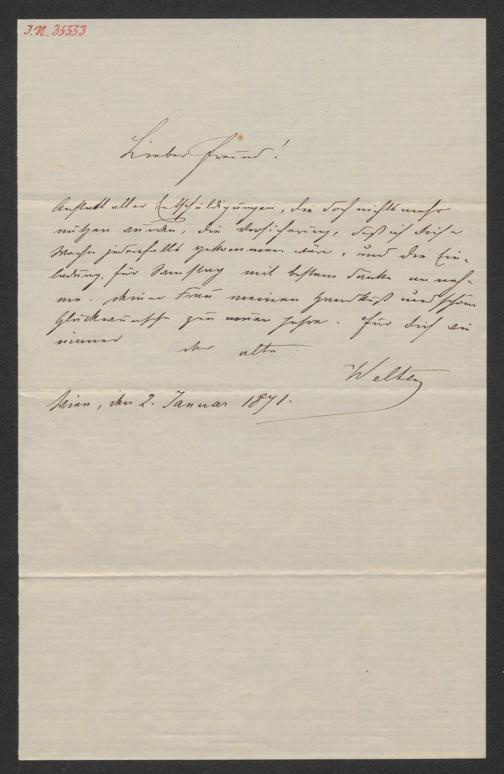 I.N. 35553
Lieber Freund!
Anstatt aller Entschuldigungen, die doch nichts mehr
nützen würden, die Versicherung, daß ich diese
Woche jedenfalls gekommen wäre, und die Ein-
ladung für Samstag mit bestem Danke anneh-
me. Deiner Frau meinen Handkuß und schöne
Glückwünsche zum neuen Jahre. Für Dich wie
immer der alte
Welten
Wien, den 2. Januar 1871.